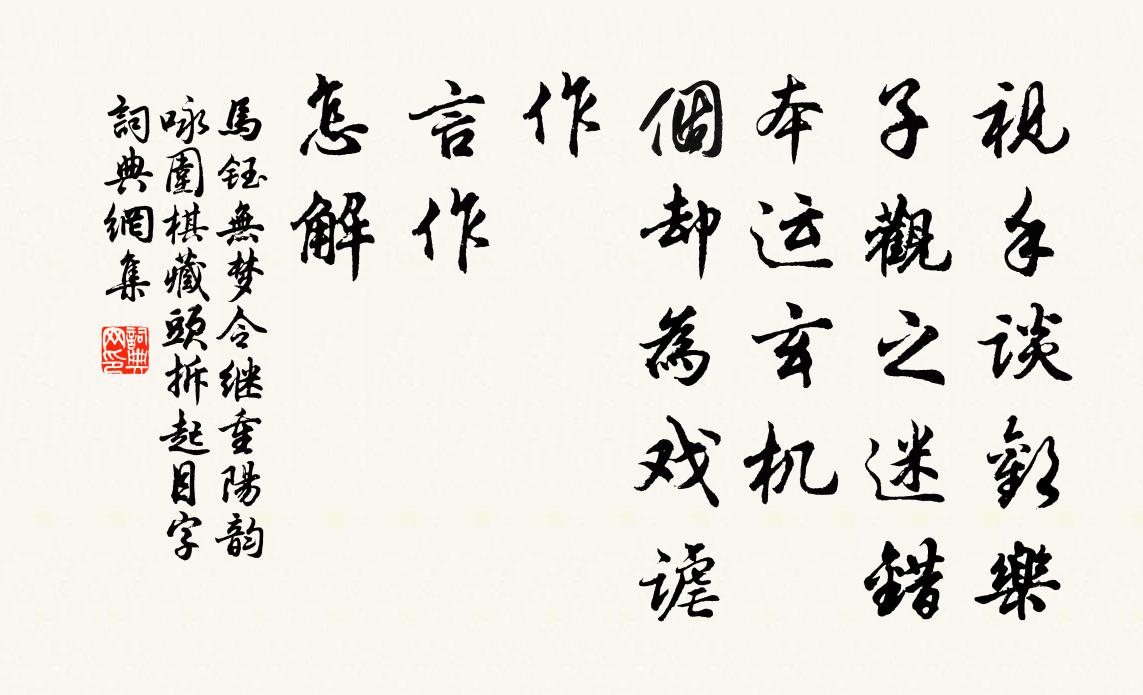 視手谈歡樂
子觀之迷錯
本运玄机
個却為戏謔
作
言作
怎解
馬钰無梦令继重陽韵
咏圍棋藏頭拆起目字
詞典網集
詞典网印